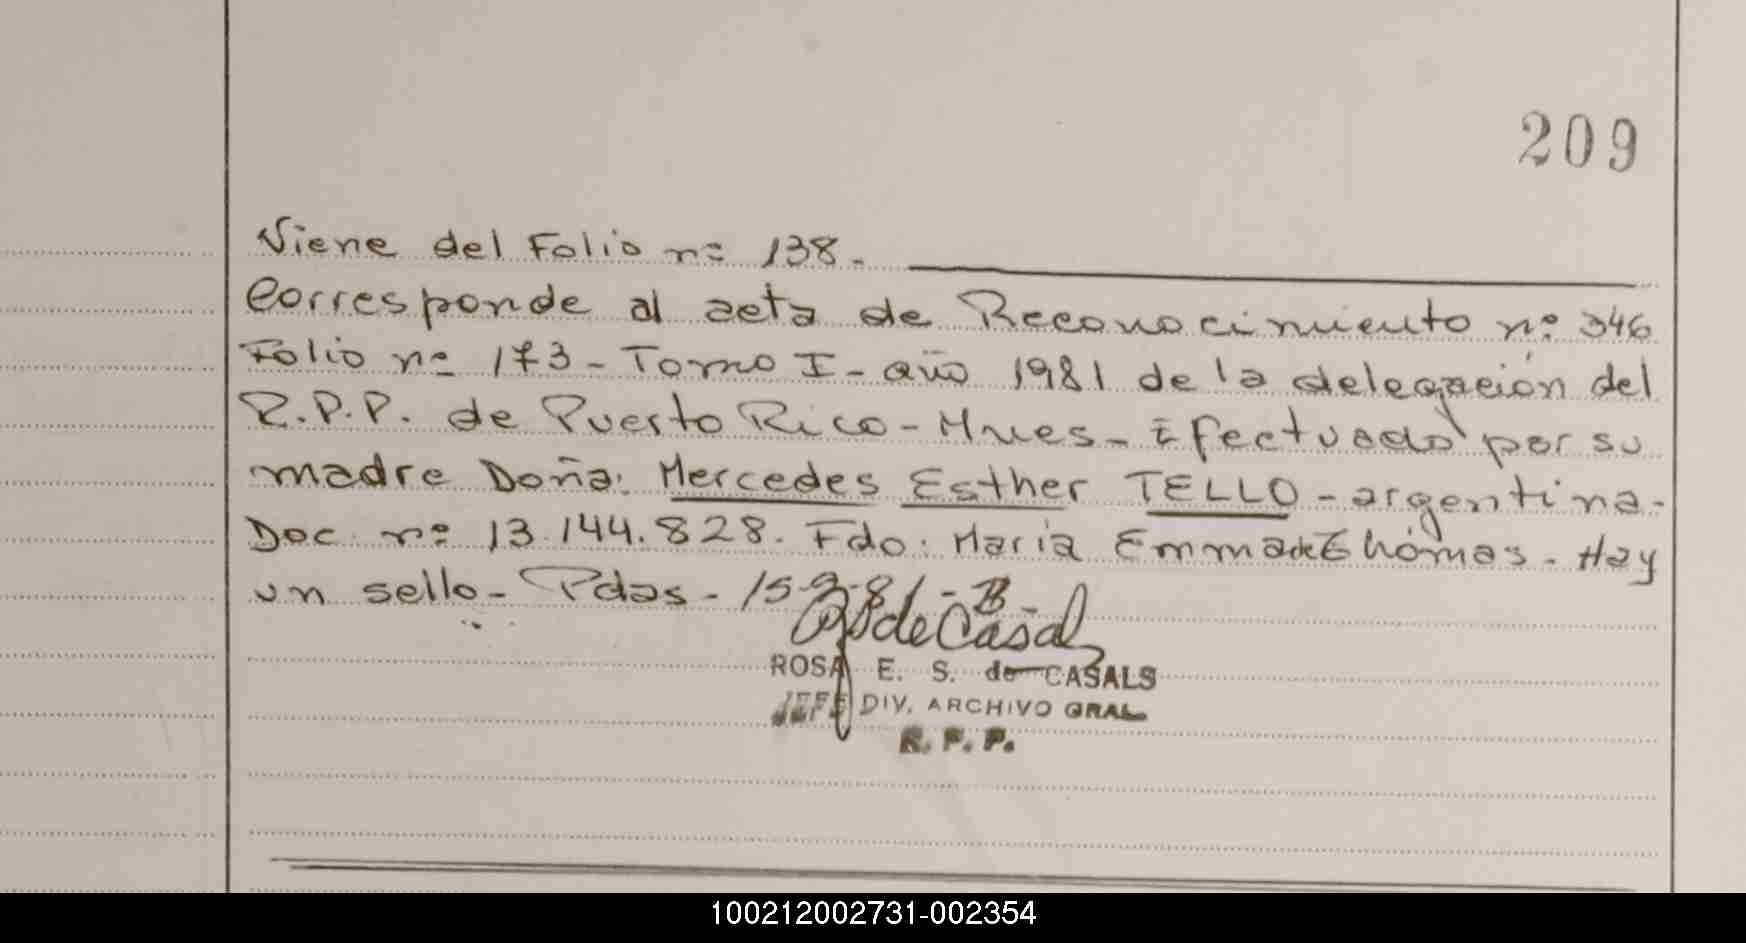 209
Viene del Folio nº 138.
Corresponde al acta de Reconocimiento nº 346
Folio nº 173 - Tomo I - año 1981 de la delegación del
R.P.P. de Puerto Rico - Mnes - Efectuado por su
madre Doña: Mercedes Esther TELLO - argentina -
Doc. nº 13.144.828. Fdo: María Emma de Thomas - Hay
un sello - Pdas - 15-9-81 - B -
ROSA E. S. de CASALS
JEFE DIV. ARCHIVO GRAL
R. P. P.
100212002731-002354